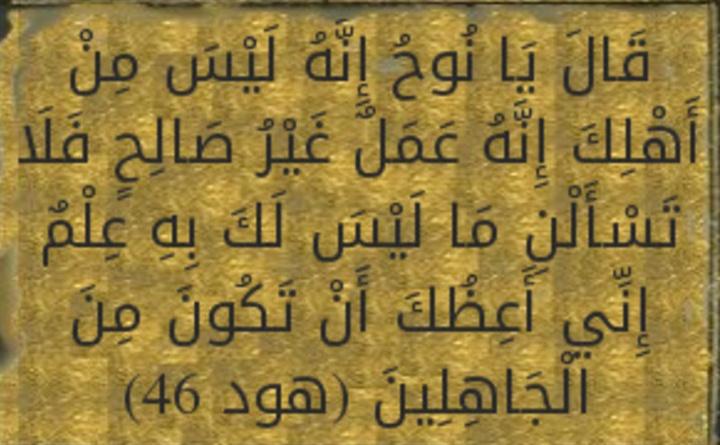 قَالَ يَا نُوحُ إِنَّهُ لَيْسَ مِنْ
أَهْلِكَ إِنَّهُ عَمَلٌ غَيْرُ صَالِحٍ فَلَا
تَسْأَلْنِ مَا لَيْسَ لَكَ بِهِ عِلْمٌ
إِنِّي أَعِظُكَ أَنْ تَكُونَ مِنَ
الْجَاهِلِينَ (هود 46)